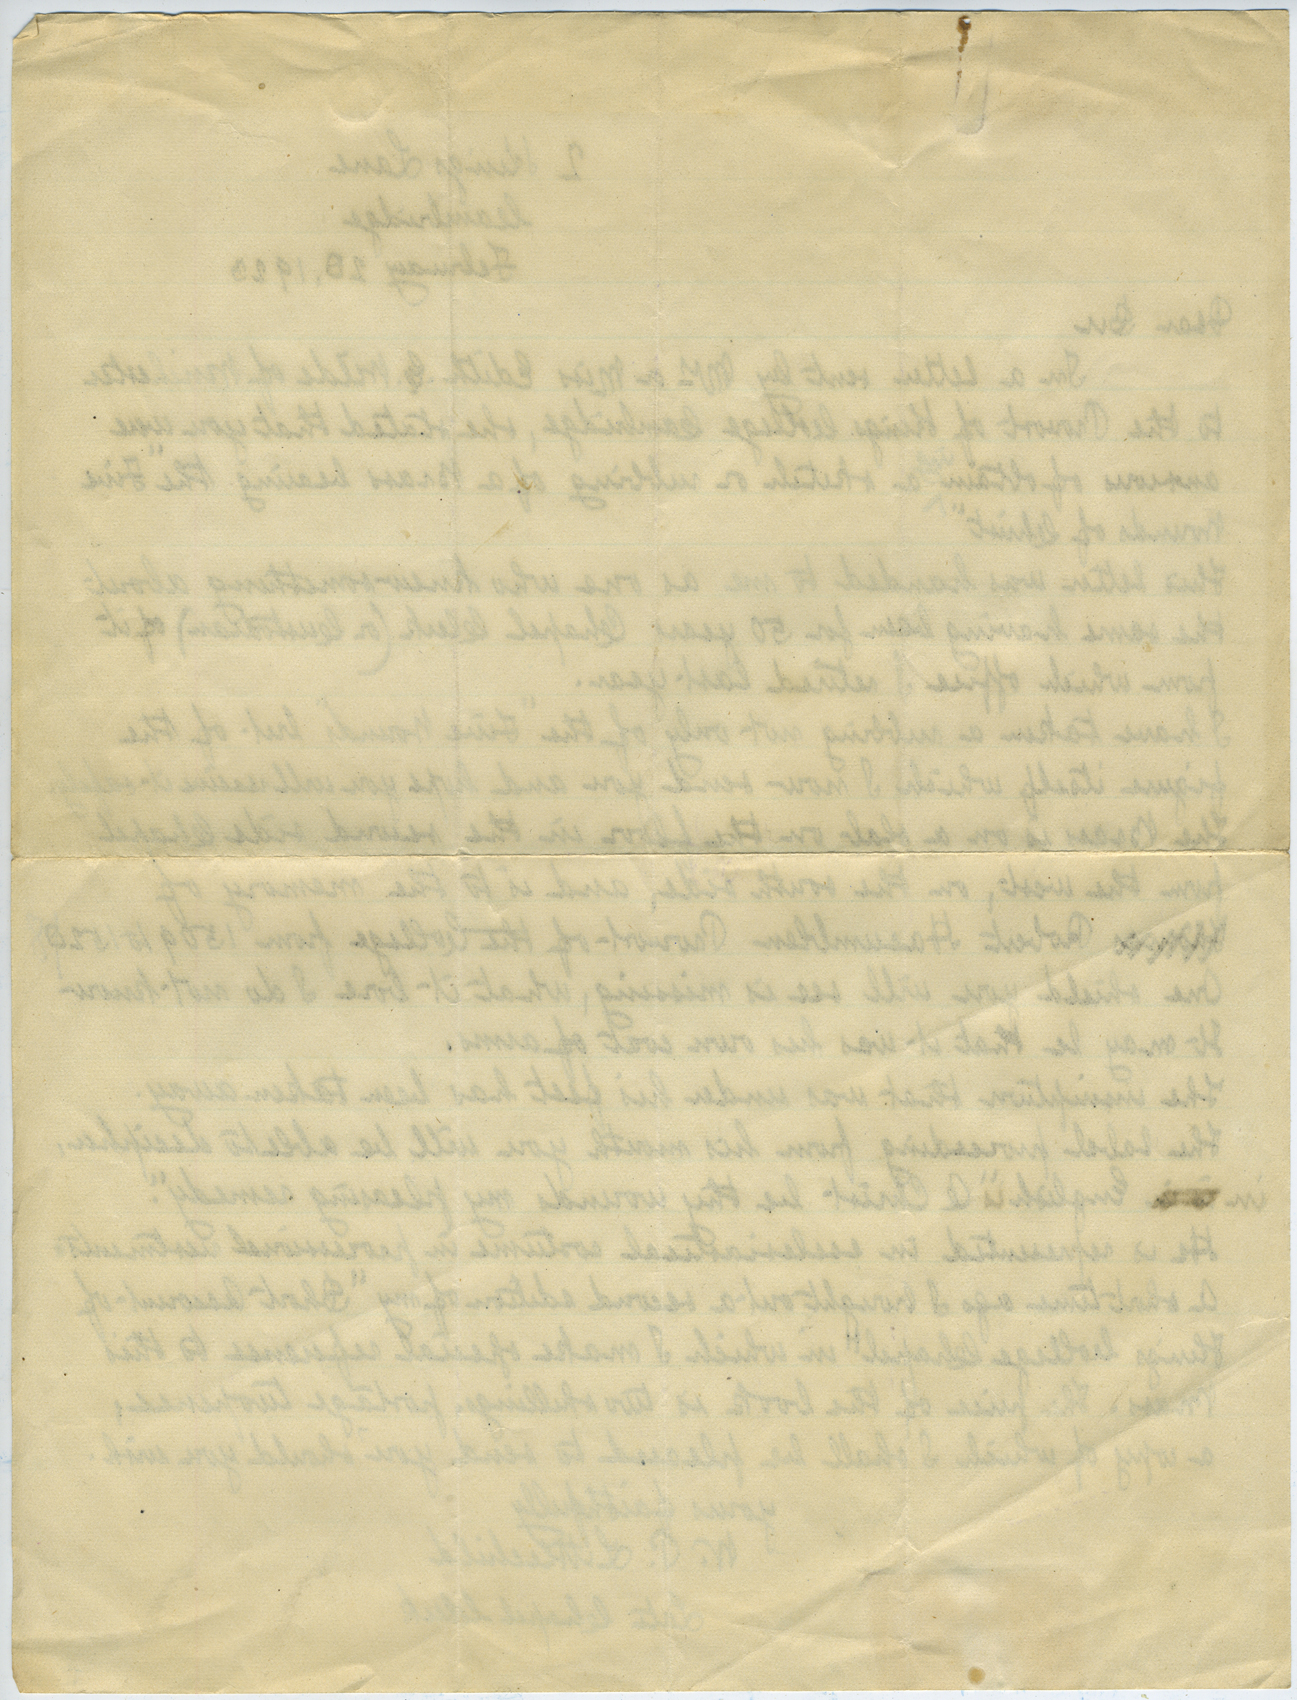 2 Kings Lane
Cambridge
February 20, 1923
Dear Sir
In a letter sent by Mrs or Miss Edith G Milds of
to the Provost of Kings College Cambridge, she stated that you were
anxious of obtain a sketch or rubbing of a Brass bearing the "Five
Wounds of Christ"
This letter was handed to me as one who knew something about
the same having been for 50 years Chapel Clerk (or Custodian) of it
from which office I retired last year.
I have taken a rubbing not only of the "Five Wounds but of the
figure itself which I now send you and hope you will receive it safely
The Brass is on a slab on the floor in the second side Chapel
from the west, on the south side, and is to the memory of
Robert Hacumblen Provost of the College from 1509 to 1528
One shield you will see is missing, what it bore I do not know
It may be that it was his own coat of arms.
The inscription that was under his feet has been taken away.
The label proceeding from his mouth you will be able to decipher,
in English is "O Christ be thy wounds my pleasing remedy".
He is represented in ecclesiastical costume in processional vestments
A short time ago I brought out a second edition of my "Short Account of
Kings College Chapel" in which I make special reference to this
Brass. The price of the book is two shillings postage twopence,
a copy of which I shall be pleased to send you should you wish.
yours faithfully
W. P. Littlechild
Late Chapel Clerk